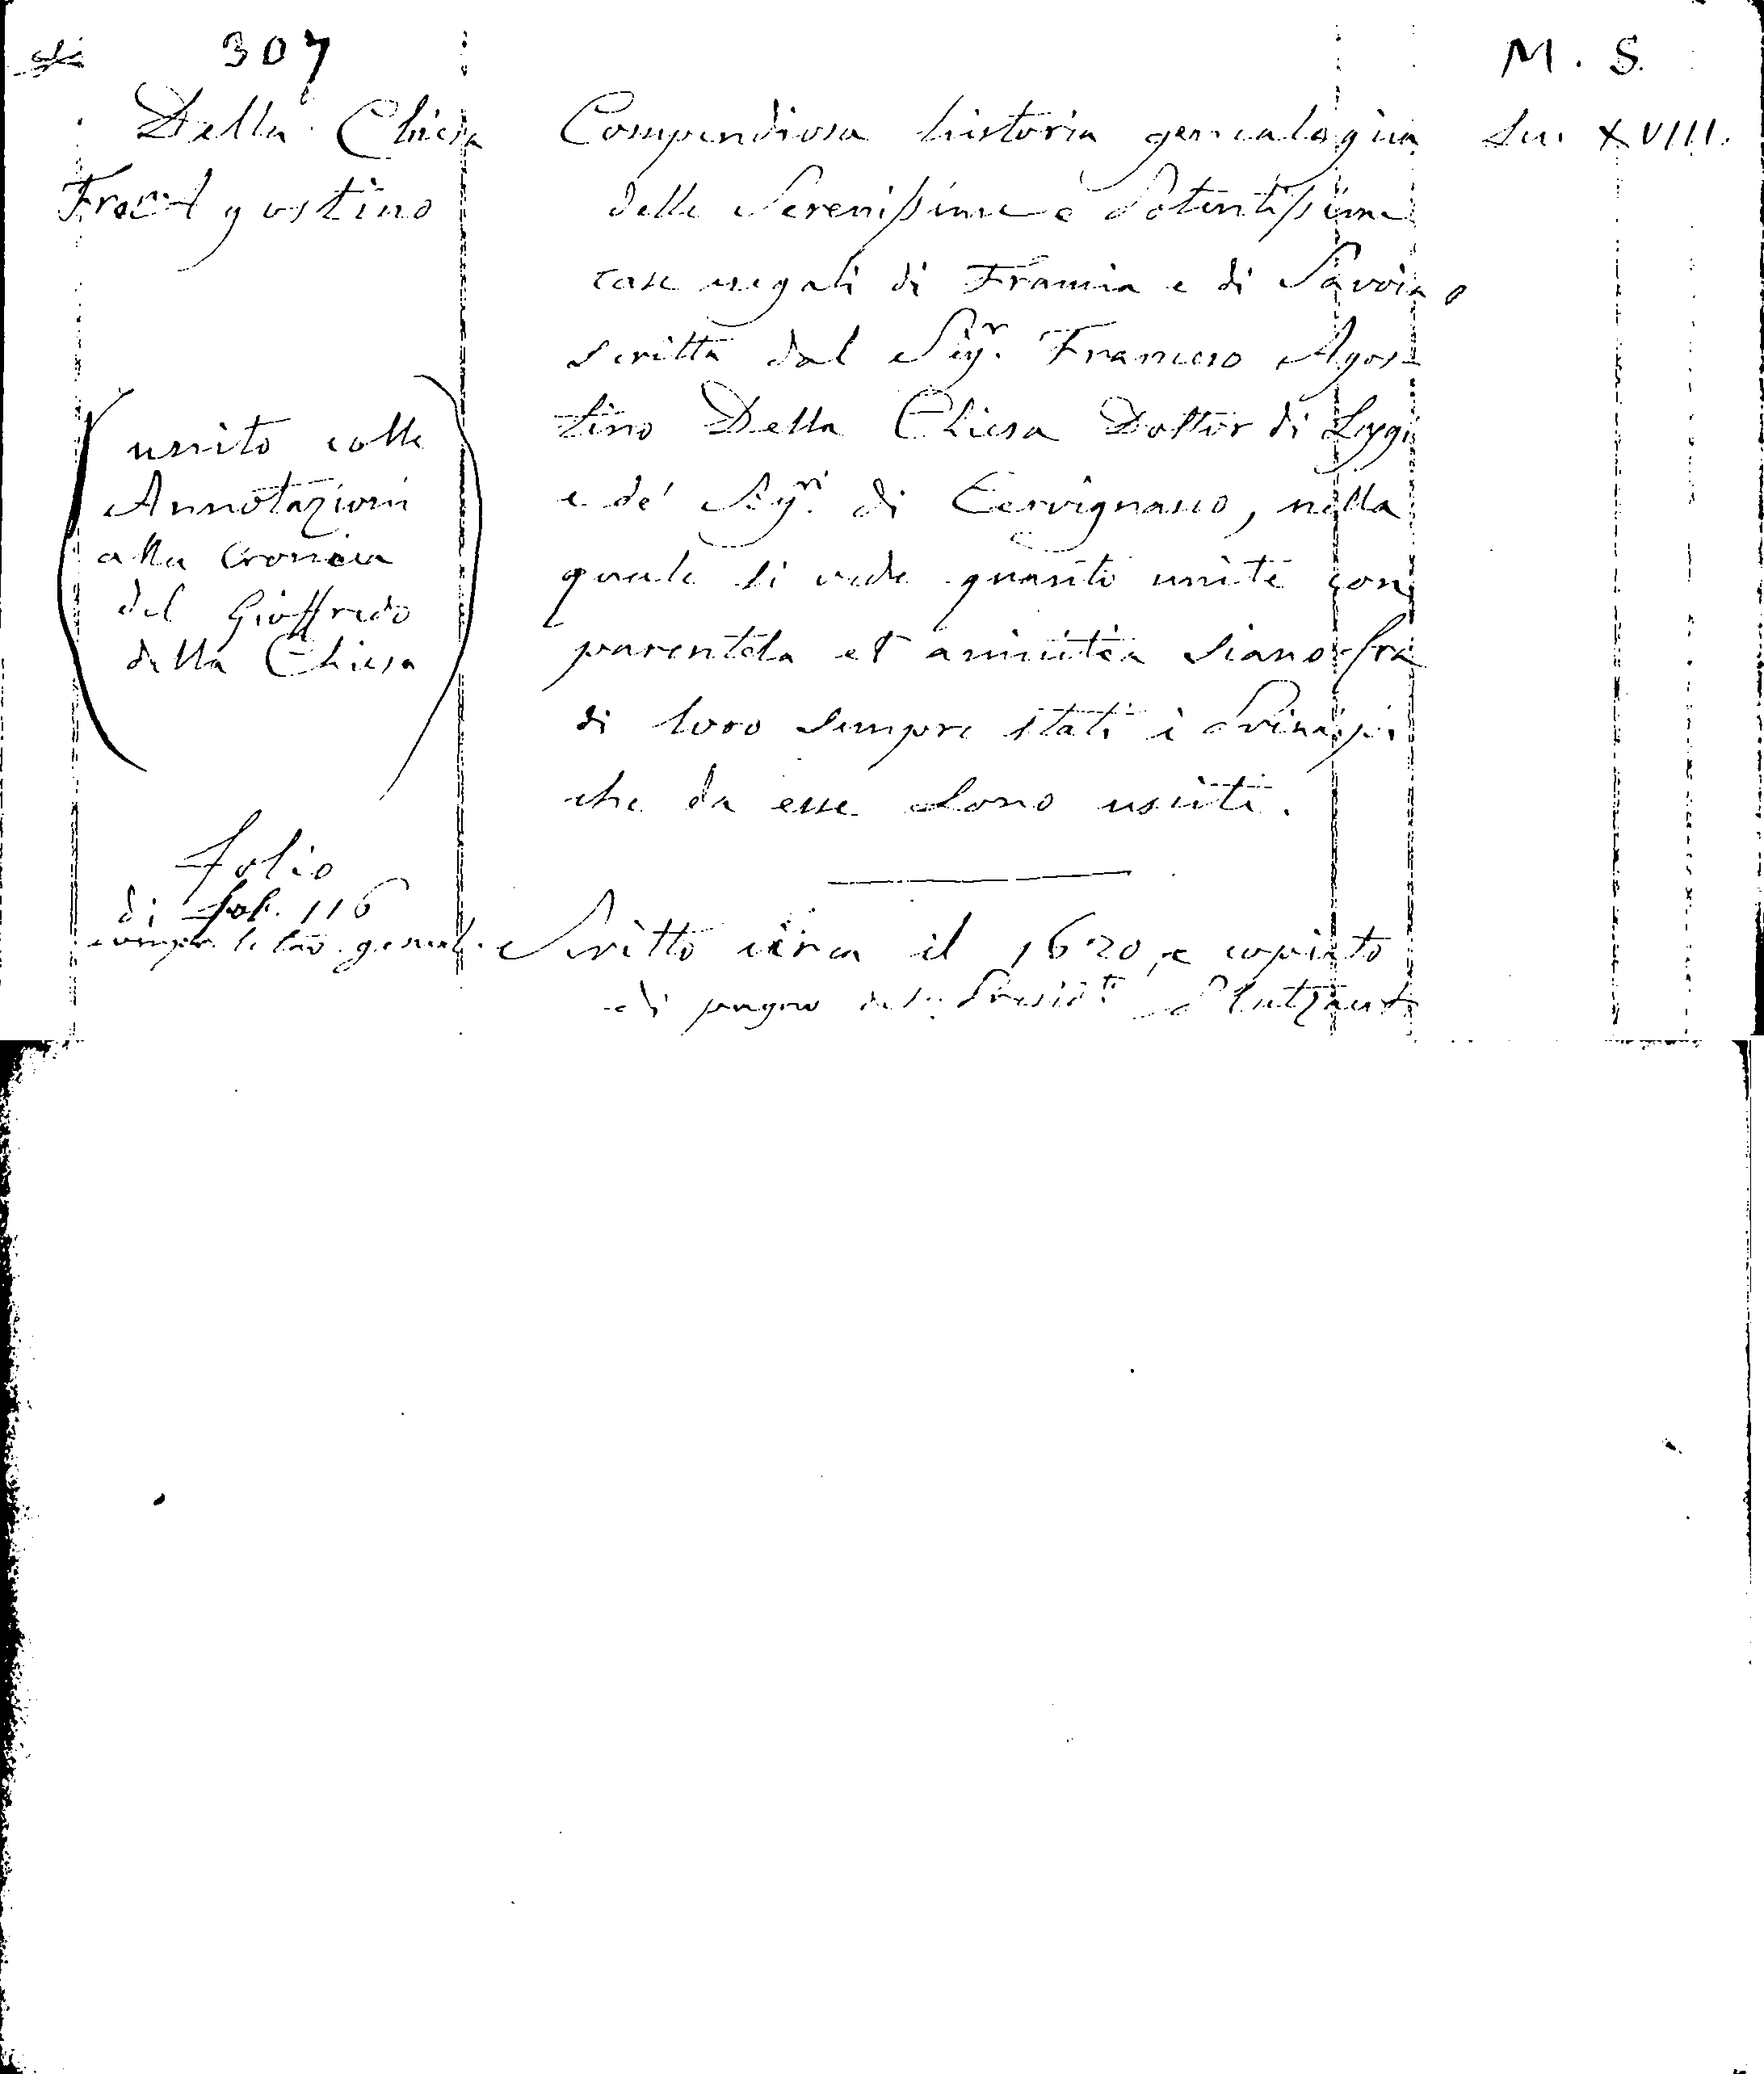 307
M. S.
Della Chiesa
Franc. Agostino
Compendiosa historia genealogica
Sec. XVIII.
delle Serenissime e Potentissime
case regali di Francia e di Savoia
scritta dal Sigr. Francesco Agos-
tino Della Chiesa Dottor di Leggi
e de' Sigri. di Cervignasco, nella
quale si vede quanto unite con
parentela et amicitia siano fra
di loro sempre stati i Principi
che da esse sono usciti.
(unito colle
Annotazioni
alla Cronica
del Gioffredo
della Chiesa)
folio
di fol. 116
compr. le tav. geneal.
Scritto circa il 1620, e copiato
di pugno del Presid.te